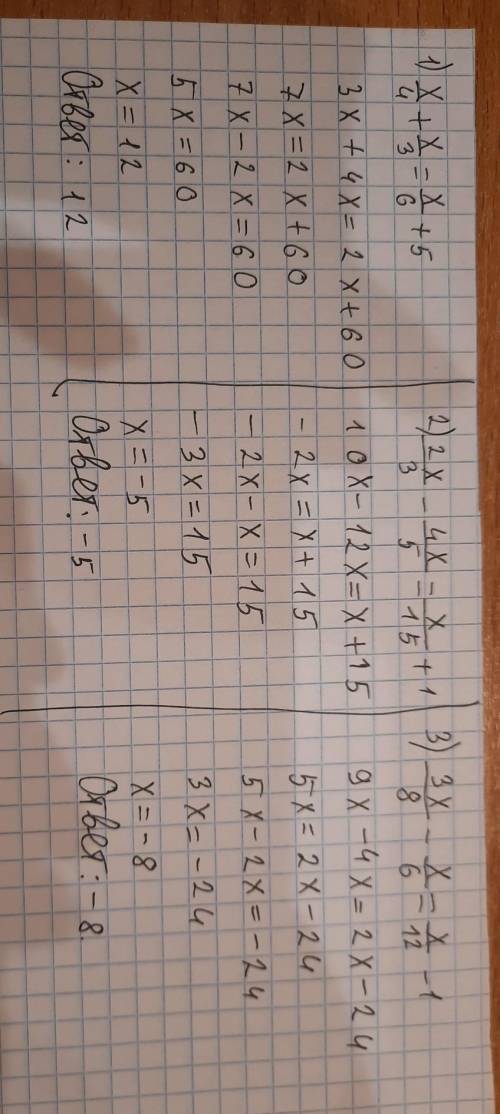 1) x/4 + x/3 = x/6 + 5
3x + 4x = 2x + 60
7x = 2x + 60
7x - 2x = 60
5x = 60
x = 12
Ответ: 12
2) 2x/3 - 4x/5 = x/15 + 1
10x - 12x = x + 15
- 2x = x + 15
- 2x - x = 15
- 3x = 15
x = -5
Ответ: -5
3) 3x/8 - x/6 = x/12 - 1
9x - 4x = 2x - 24
5x = 2x - 24
5x - 2x = -24
3x = -24
x = -8
Ответ: -8.